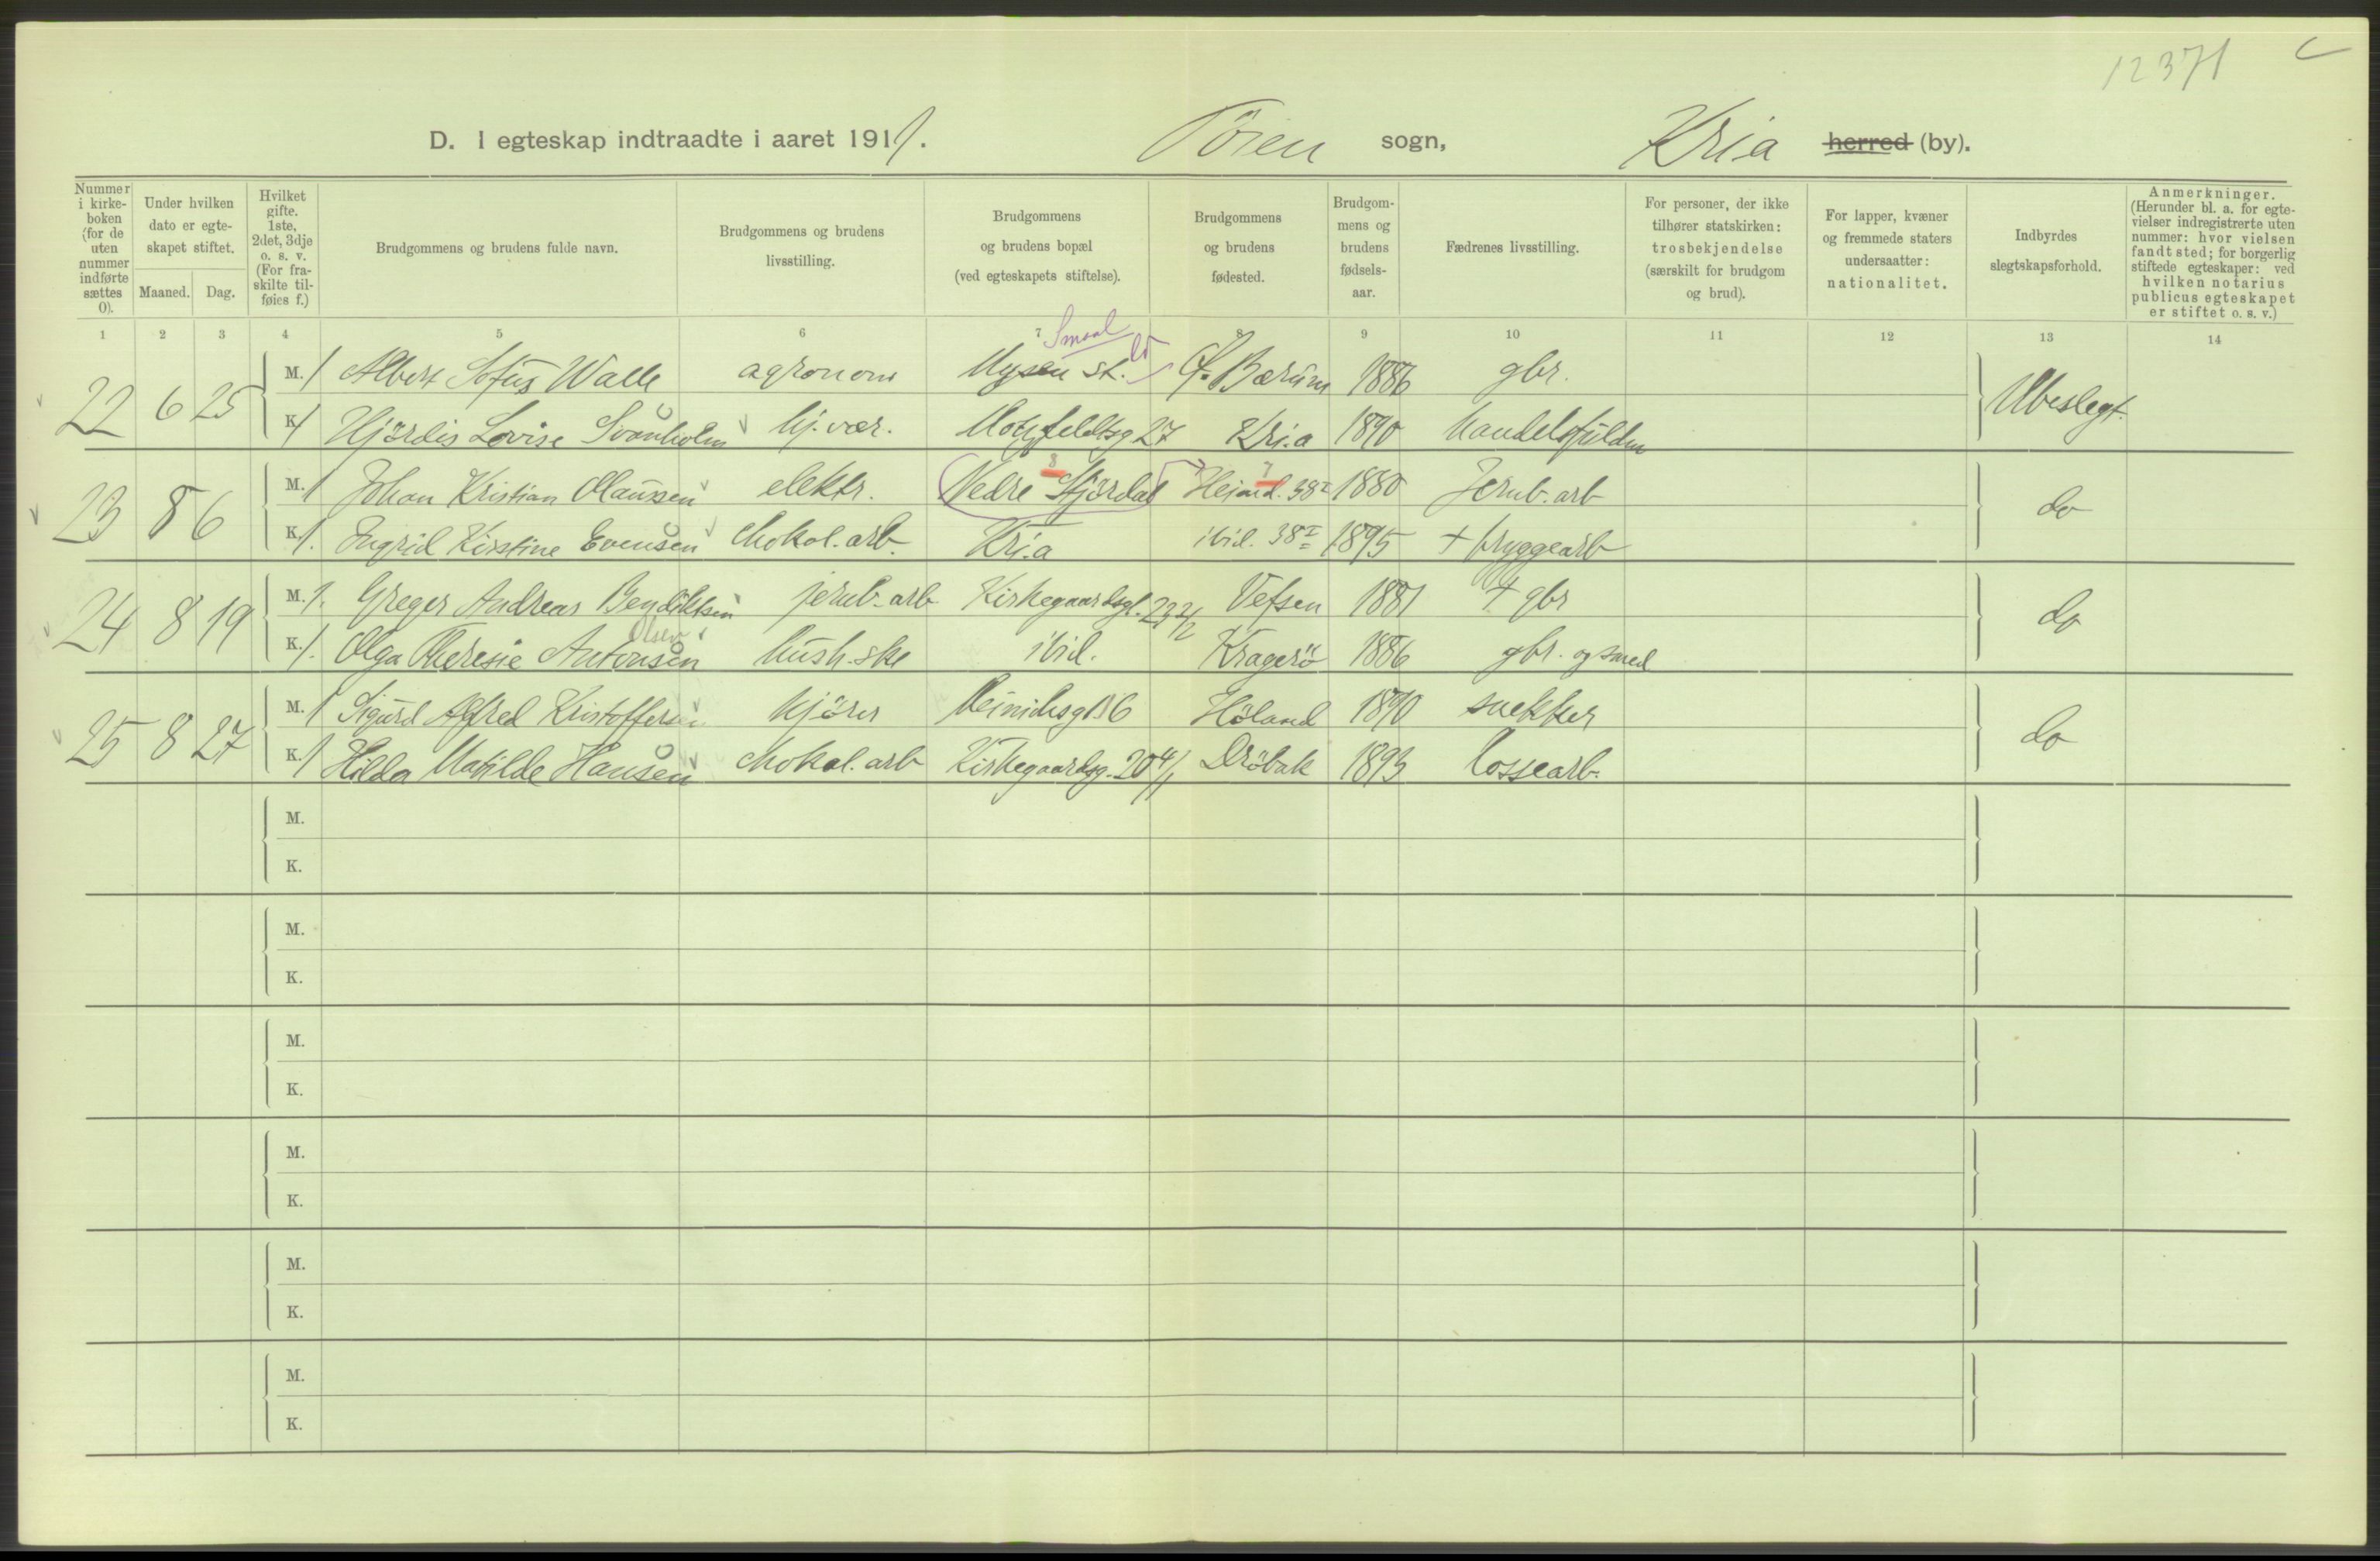 12371
D. I egteskap indtraadte i aaret 1911. Töien sogn, Kria herred (by).
Nummer i kirkeboken (for de uten nummer indførte sættes 0).
Under hvilken dato er egteskapet stiftet.
Maaned. Dag.
Hvilket gifte. 1ste, 2det, 3dje o. s. v. (For fraskilte tilføies f.)
Brudgommens og brudens fulde navn.
Brudgommens og brudens livsstilling.
Brudgommens og brudens bopæl (ved egteskapets stiftelse).
Brudgommens og brudens fødested.
Brudgommens og brudens fødselsaar.
Fædrenes livsstilling.
For personer, der ikke tilhører statskirken: trosbekjendelse (særskilt for brudgom og brud).
For lapper, kvæner og fremmede staters undersaatter: nationalitet.
Indbyrdes slegtskapsforhold.
Anmerkninger. (Herunder bl. a. for egtevielser indregistrerte uten nummer: hvor vielsen fandt sted; for borgerlig stiftede egteskaper: ved hvilken notarius publicus egteskapet er stiftet o. s. v.)
1 2 3 4 5 6 7 8 9 10 11 12 13 14
Smaal
22 6 25 M. 1 Albert Sofus Walle agronom Mysen st. Ø. Bærum 1886 gbr. Ubeslegt.
K. 1 Hjördis Lovise Svanholm hj. vær. Motzfeldtsg 27 Kria 1890 handelsfuldm
8 7
23 8 6 M. 1 Johan Kristian Olaussen elektr. Nedre Stjördal Heimd. 38 I 1880 Jernb. arb do
K. 1. Ingrid Kirstine Evensen chokol. arb. Kria ibid. 38 I 1895 + bryggearb
24 8 19 M. 1. Greger Andreas Bendiktsen jernb. arb Kirkegaardsgt. 23 2/2 Vefsen 1881 + gbr do
Olsen
K. 1. Olga Theresie Antonsen hush. ske ibid. Kragerö 1886 gbr. og smed
25 8 27 M. 1 Sigurd Alfred Kristoffersen kjörer Heinichsg 16 Höland 1890 snekker do
K. 1 Hilda Matilde Hansen chokol. arb Kirkegaardsg. 20 4/1 Dröbak 1893 Lossearb.
M.
K.
M.
K.
M.
K.
M.
K.
M.
K.
M.
K.